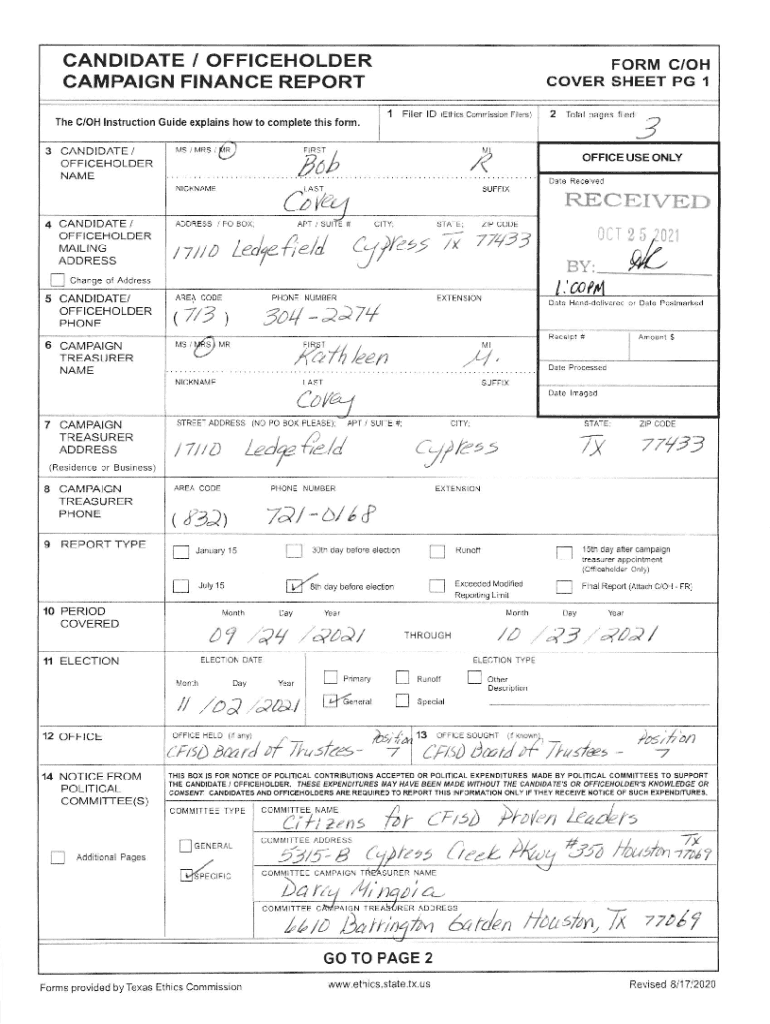 CANDIDATE / OFFICEHOLDER
CAMPAIGN FINANCE REPORT
FORM C/OH
COVER SHEET PG 1
The C/OH Instruction Guide explains how to complete this form.
1 Filer ID (Ethics Commission Filers)
2 Total pages filed:
3
3 CANDIDATE / OFFICEHOLDER NAME
MS / MRS / MR FIRST MI
Bob R
NICKNAME LAST SUFFIX
Covey
OFFICE USE ONLY
Date Received
RECEIVED
OCT 25 2021
BY:
1:00PM
4 CANDIDATE / OFFICEHOLDER MAILING ADDRESS
Change of Address
ADDRESS / PO BOX; APT / SUITE # CITY; STATE; ZIP CODE
17110 Ledgefield Cypress Tx 77433
Date Hand-delivered or Date Postmarked
5 CANDIDATE/ OFFICEHOLDER PHONE
AREA CODE PHONE NUMBER EXTENSION
(713) 304-2274
Receipt # Amount $
6 CAMPAIGN TREASURER NAME
MS / MRS / MR FIRST MI
Kathleen M.
NICKNAME LAST SUFFIX
Covey
Date Processed
Date Imaged
7 CAMPAIGN TREASURER ADDRESS
(Residence or Business)
STREET ADDRESS (NO PO BOX PLEASE); APT / SUITE #; CITY; STATE; ZIP CODE
17110 Ledgefield Cypress Tx 77433
8 CAMPAIGN TREASURER PHONE
AREA CODE PHONE NUMBER EXTENSION
(832) 721-0168
9 REPORT TYPE
January 15 30th day before election Runoff 15th day after campaign treasurer appointment (Officeholder Only)
July 15 8th day before election Exceeded Modified Reporting Limit Final Report (Attach C/OH - FR)
10 PERIOD COVERED
Month Day Year Month Day Year
09 / 24 / 2021 THROUGH 10 / 23 / 2021
11 ELECTION
ELECTION DATE ELECTION TYPE
Month Day Year
11 / 02 / 2021
Primary Runoff Other Description
General Special
12 OFFICE
OFFICE HELD (if any)
CFISD Board of Trustees - Position 7
13 OFFICE SOUGHT (if known)
CFISD Board of Trustees - Position 7
14 NOTICE FROM POLITICAL COMMITTEE(S)
Additional Pages
THIS BOX IS FOR NOTICE OF POLITICAL CONTRIBUTIONS ACCEPTED OR POLITICAL EXPENDITURES MADE BY POLITICAL COMMITTEES TO SUPPORT
THE CANDIDATE / OFFICEHOLDER. THESE EXPENDITURES MAY HAVE BEEN MADE WITHOUT THE CANDIDATE'S OR OFFICEHOLDER'S KNOWLEDGE OR
CONSENT. CANDIDATES AND OFFICEHOLDERS ARE REQUIRED TO REPORT THIS INFORMATION ONLY IF THEY RECEIVE NOTICE OF SUCH EXPENDITURES.
COMMITTEE TYPE
GENERAL
SPECIFIC
COMMITTEE NAME
Citizens for CFISD Proven Leaders
COMMITTEE ADDRESS
5315-B Cypress Creek PKwy #350 Houston Tx 77069
COMMITTEE CAMPAIGN TREASURER NAME
Darcy Mingoia
COMMITTEE CAMPAIGN TREASURER ADDRESS
6610 Barrington Garden Houston, Tx 77069
GO TO PAGE 2
Forms provided by Texas Ethics Commission
www.ethics.state.tx.us
Revised 8/17/2020